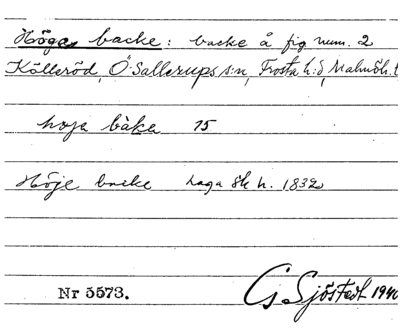 Höga backe: backe å fig num. 2
Källeröd, Ö. Sallerups s:n, Frosta h:d, Malmöh. l
höja bàka 15
Höje backe Laga sk h. 1832
Nr 5573. G Sjöstedt 1940